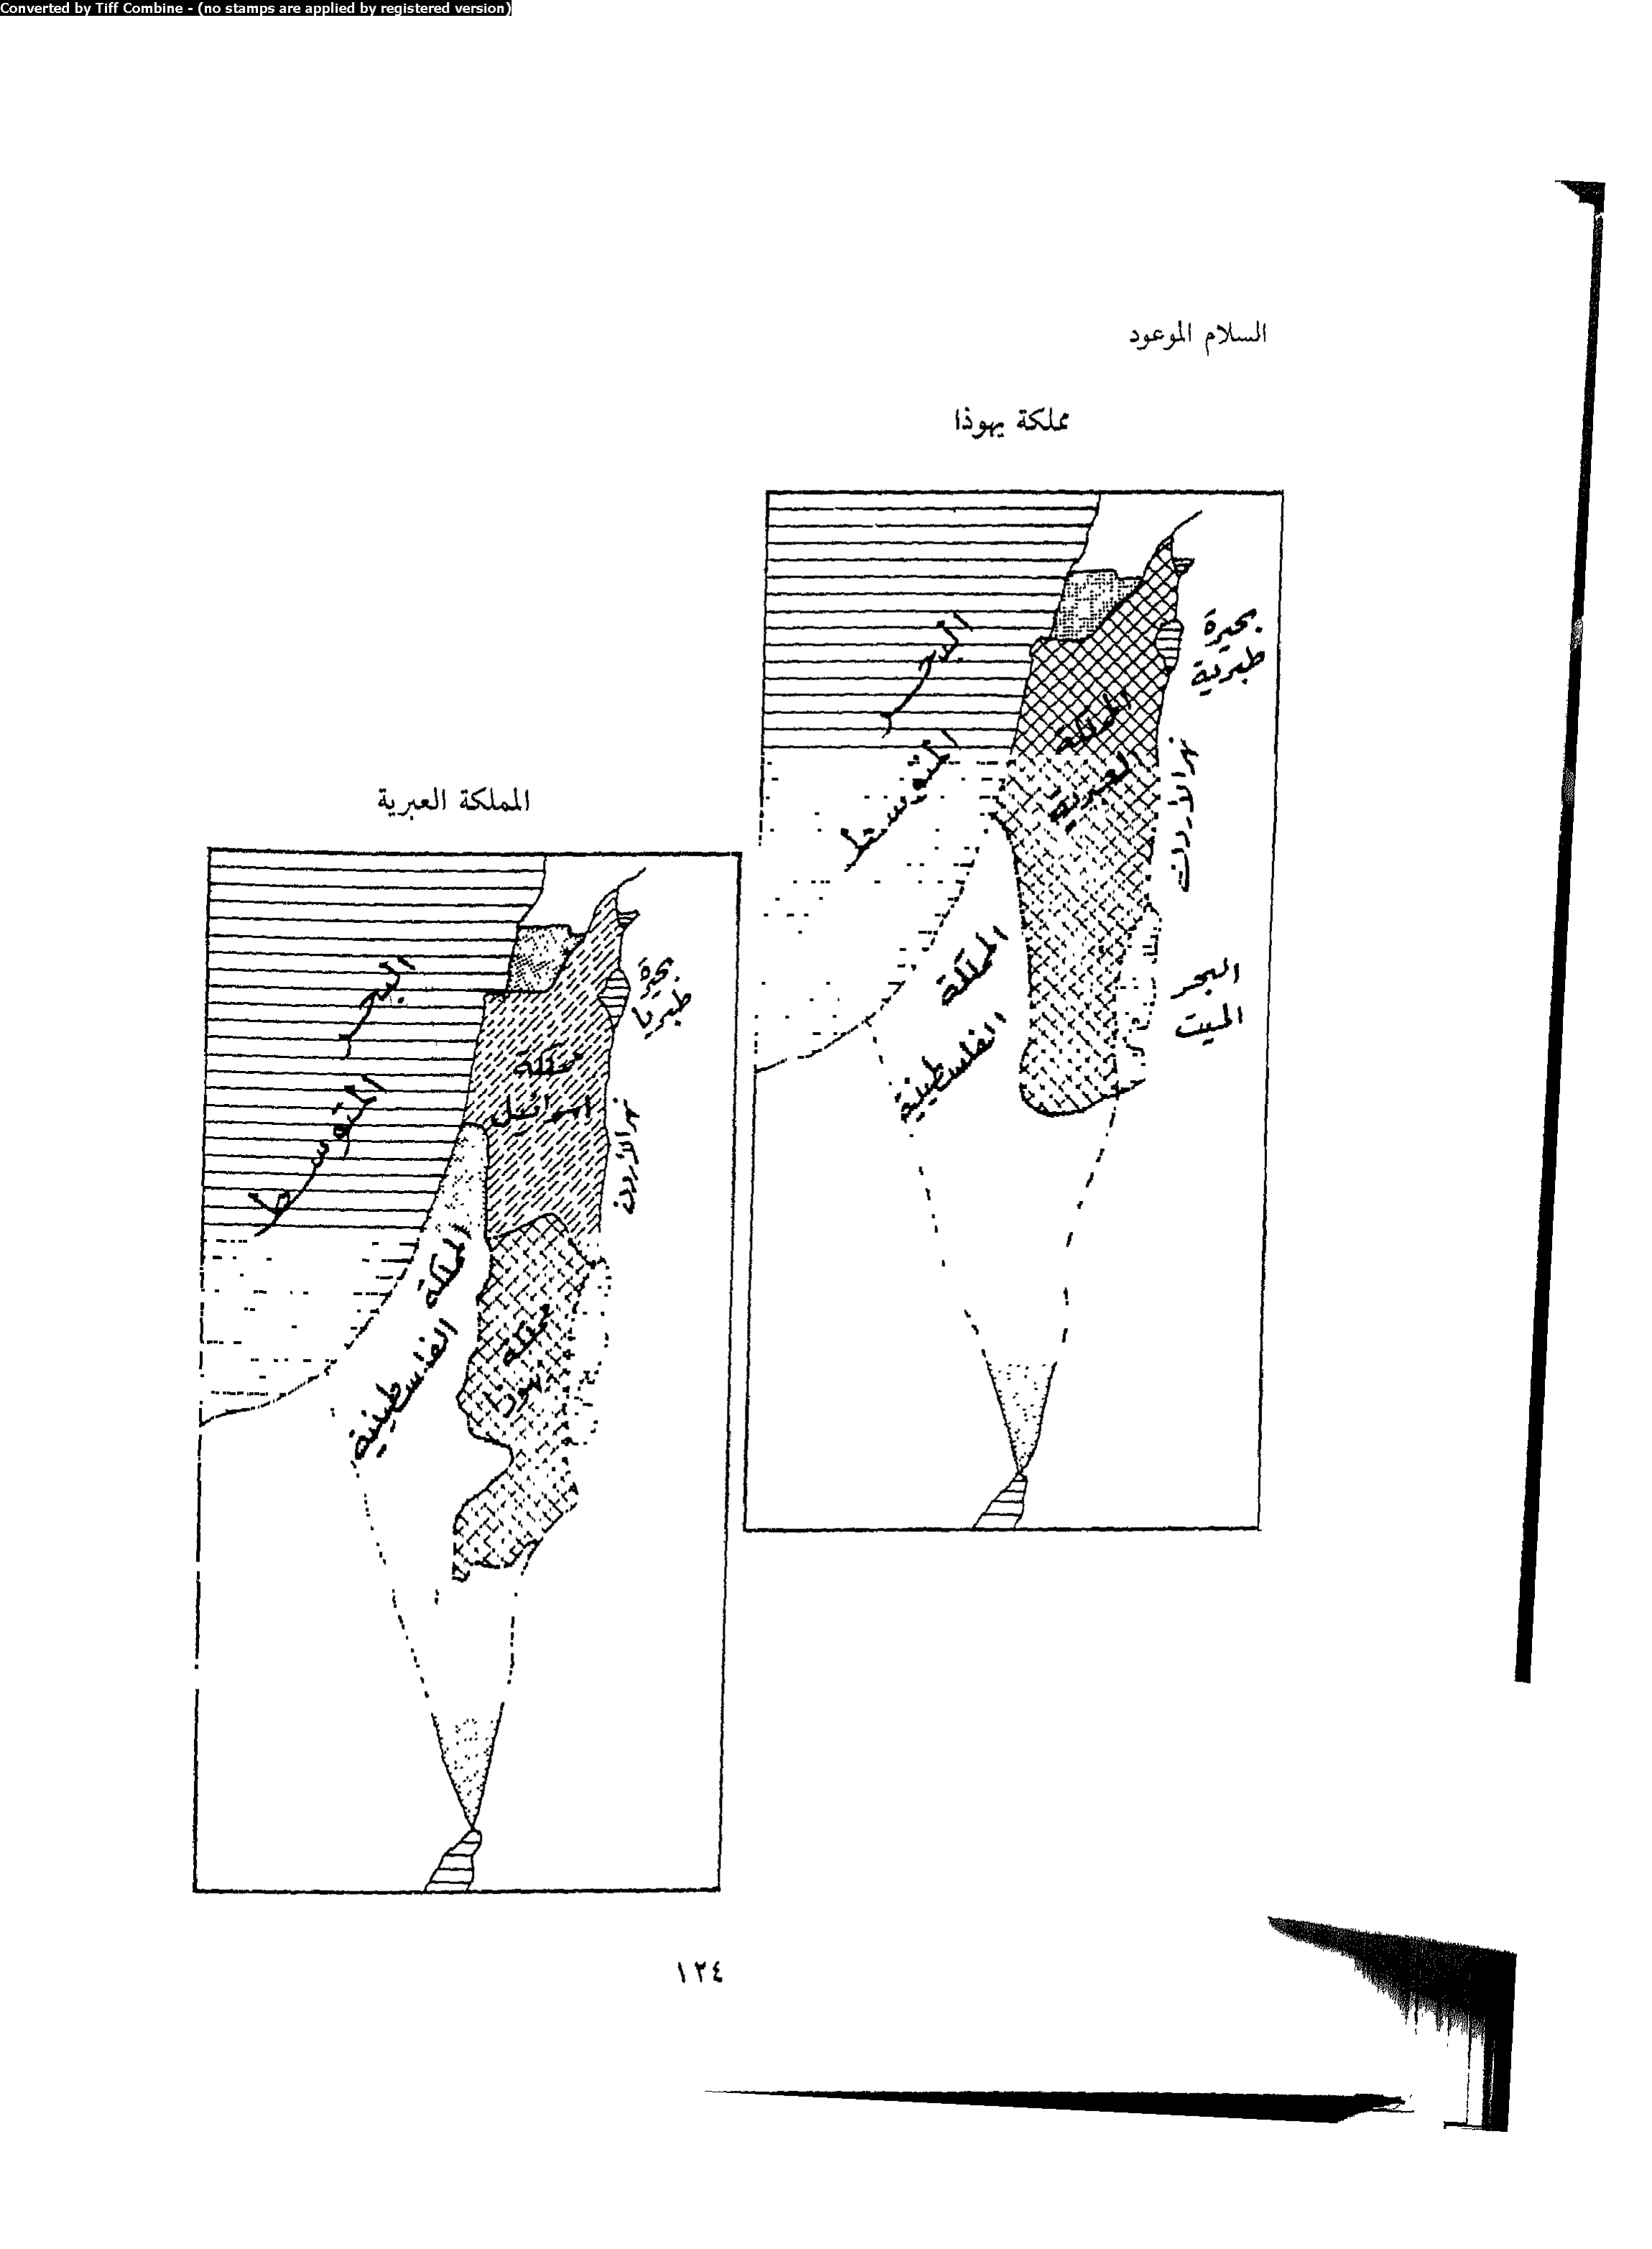 Converted by Tiff Combine - (no stamps are applied by registered version)
السلام الموعود
مملكة يهوذا
البحر
المتوسط
بحيرة
طبرية
المملكة
العبرية
نهر الأردن
المملكة
الفلسطينية
البحر
الميت
المملكة العبرية
البحر
المتوسط
بحيرة
طبريا
مملكة
اسرائيل
نهر الأردن
المملكة
الفلسطينية
مملكة
يهوذا
١٢٤